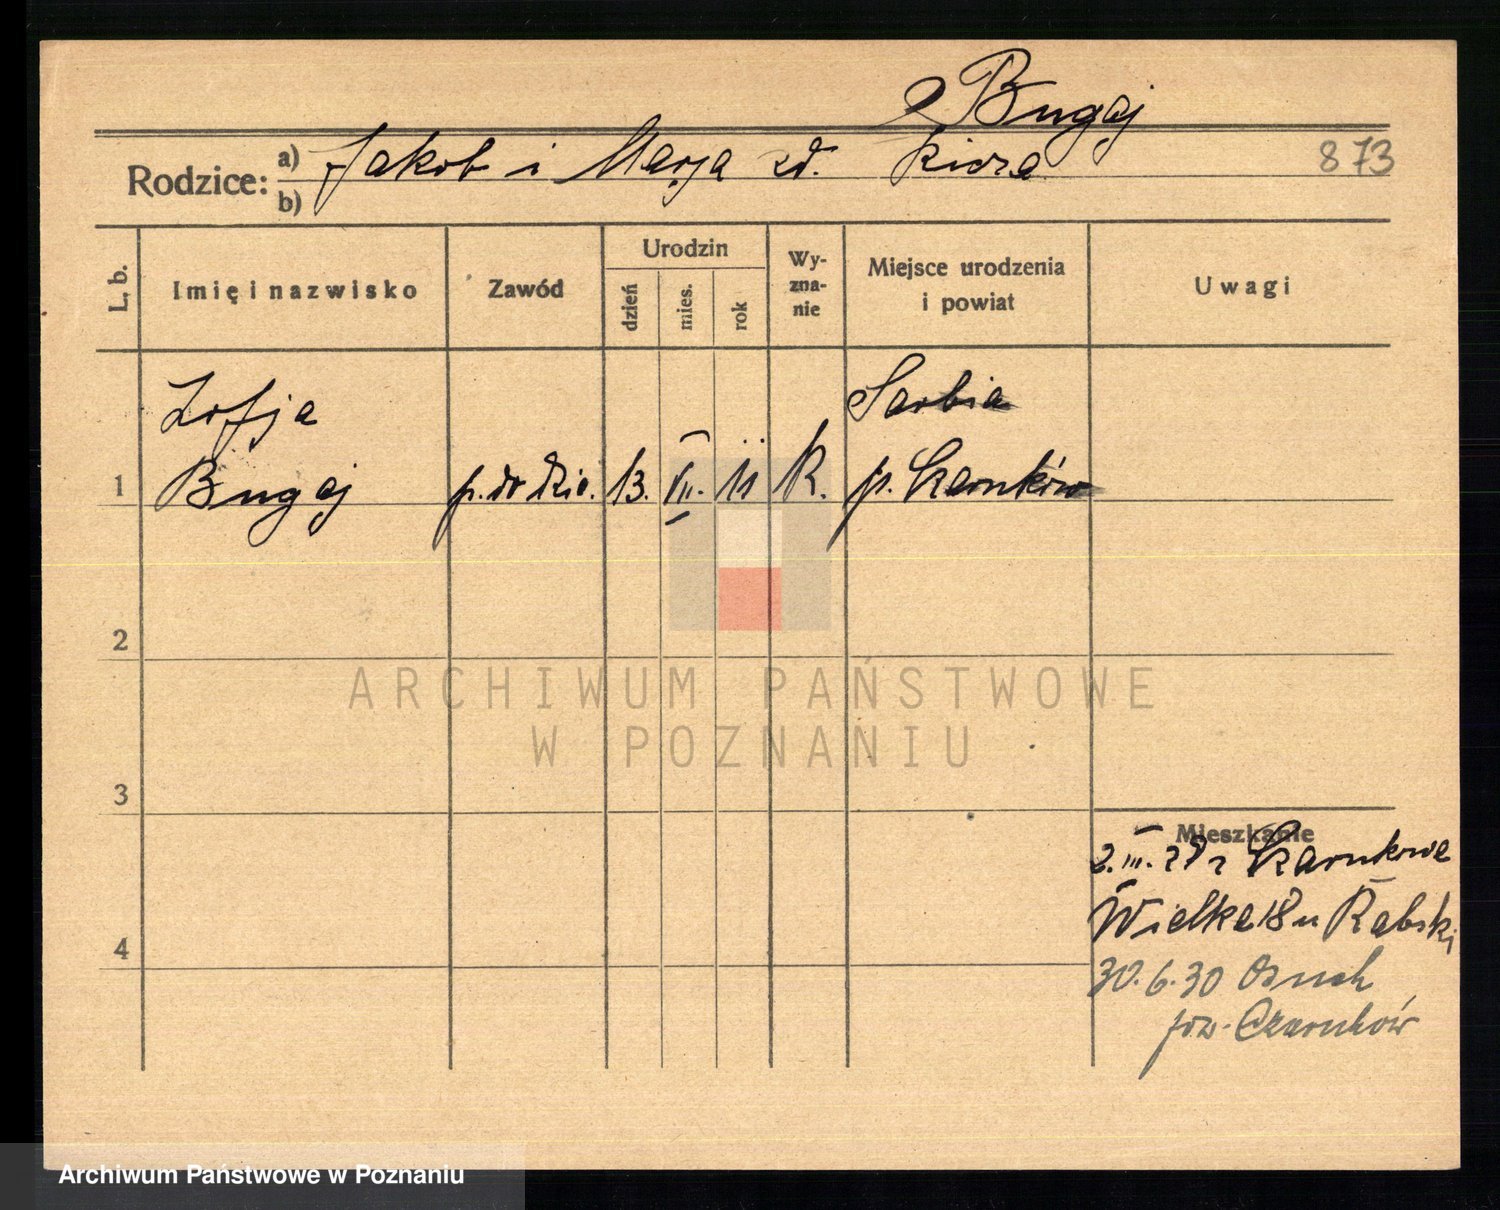 Bugaj
Rodzice: a) Jakób i Marja zd.
b)
873
L. b.
Imię i nazwisko
Zawód
Urodzin
dzień
mies.
rok
Wy-
zna-
nie
Miejsce urodzenia
i powiat
Uwagi
Zofja
Sarbia
1 Bugaj p. do dzie. 13. VII. 11 K. p. Czarnków
2
3
4
Mieszkanie
2. III. 29 z Czarnkowa
Wielka 18 u Rabski
30.6.30 Osuch
pow. Czarnków
ARCHIWUM PAŃSTWOWE
W POZNANIU
Archiwum Państwowe w Poznaniu